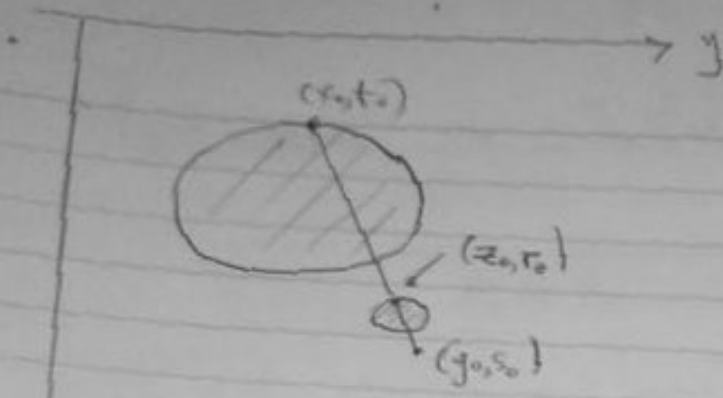 y
(x₀,t₀)
(z₀,r₀)
(y₀,s₀)